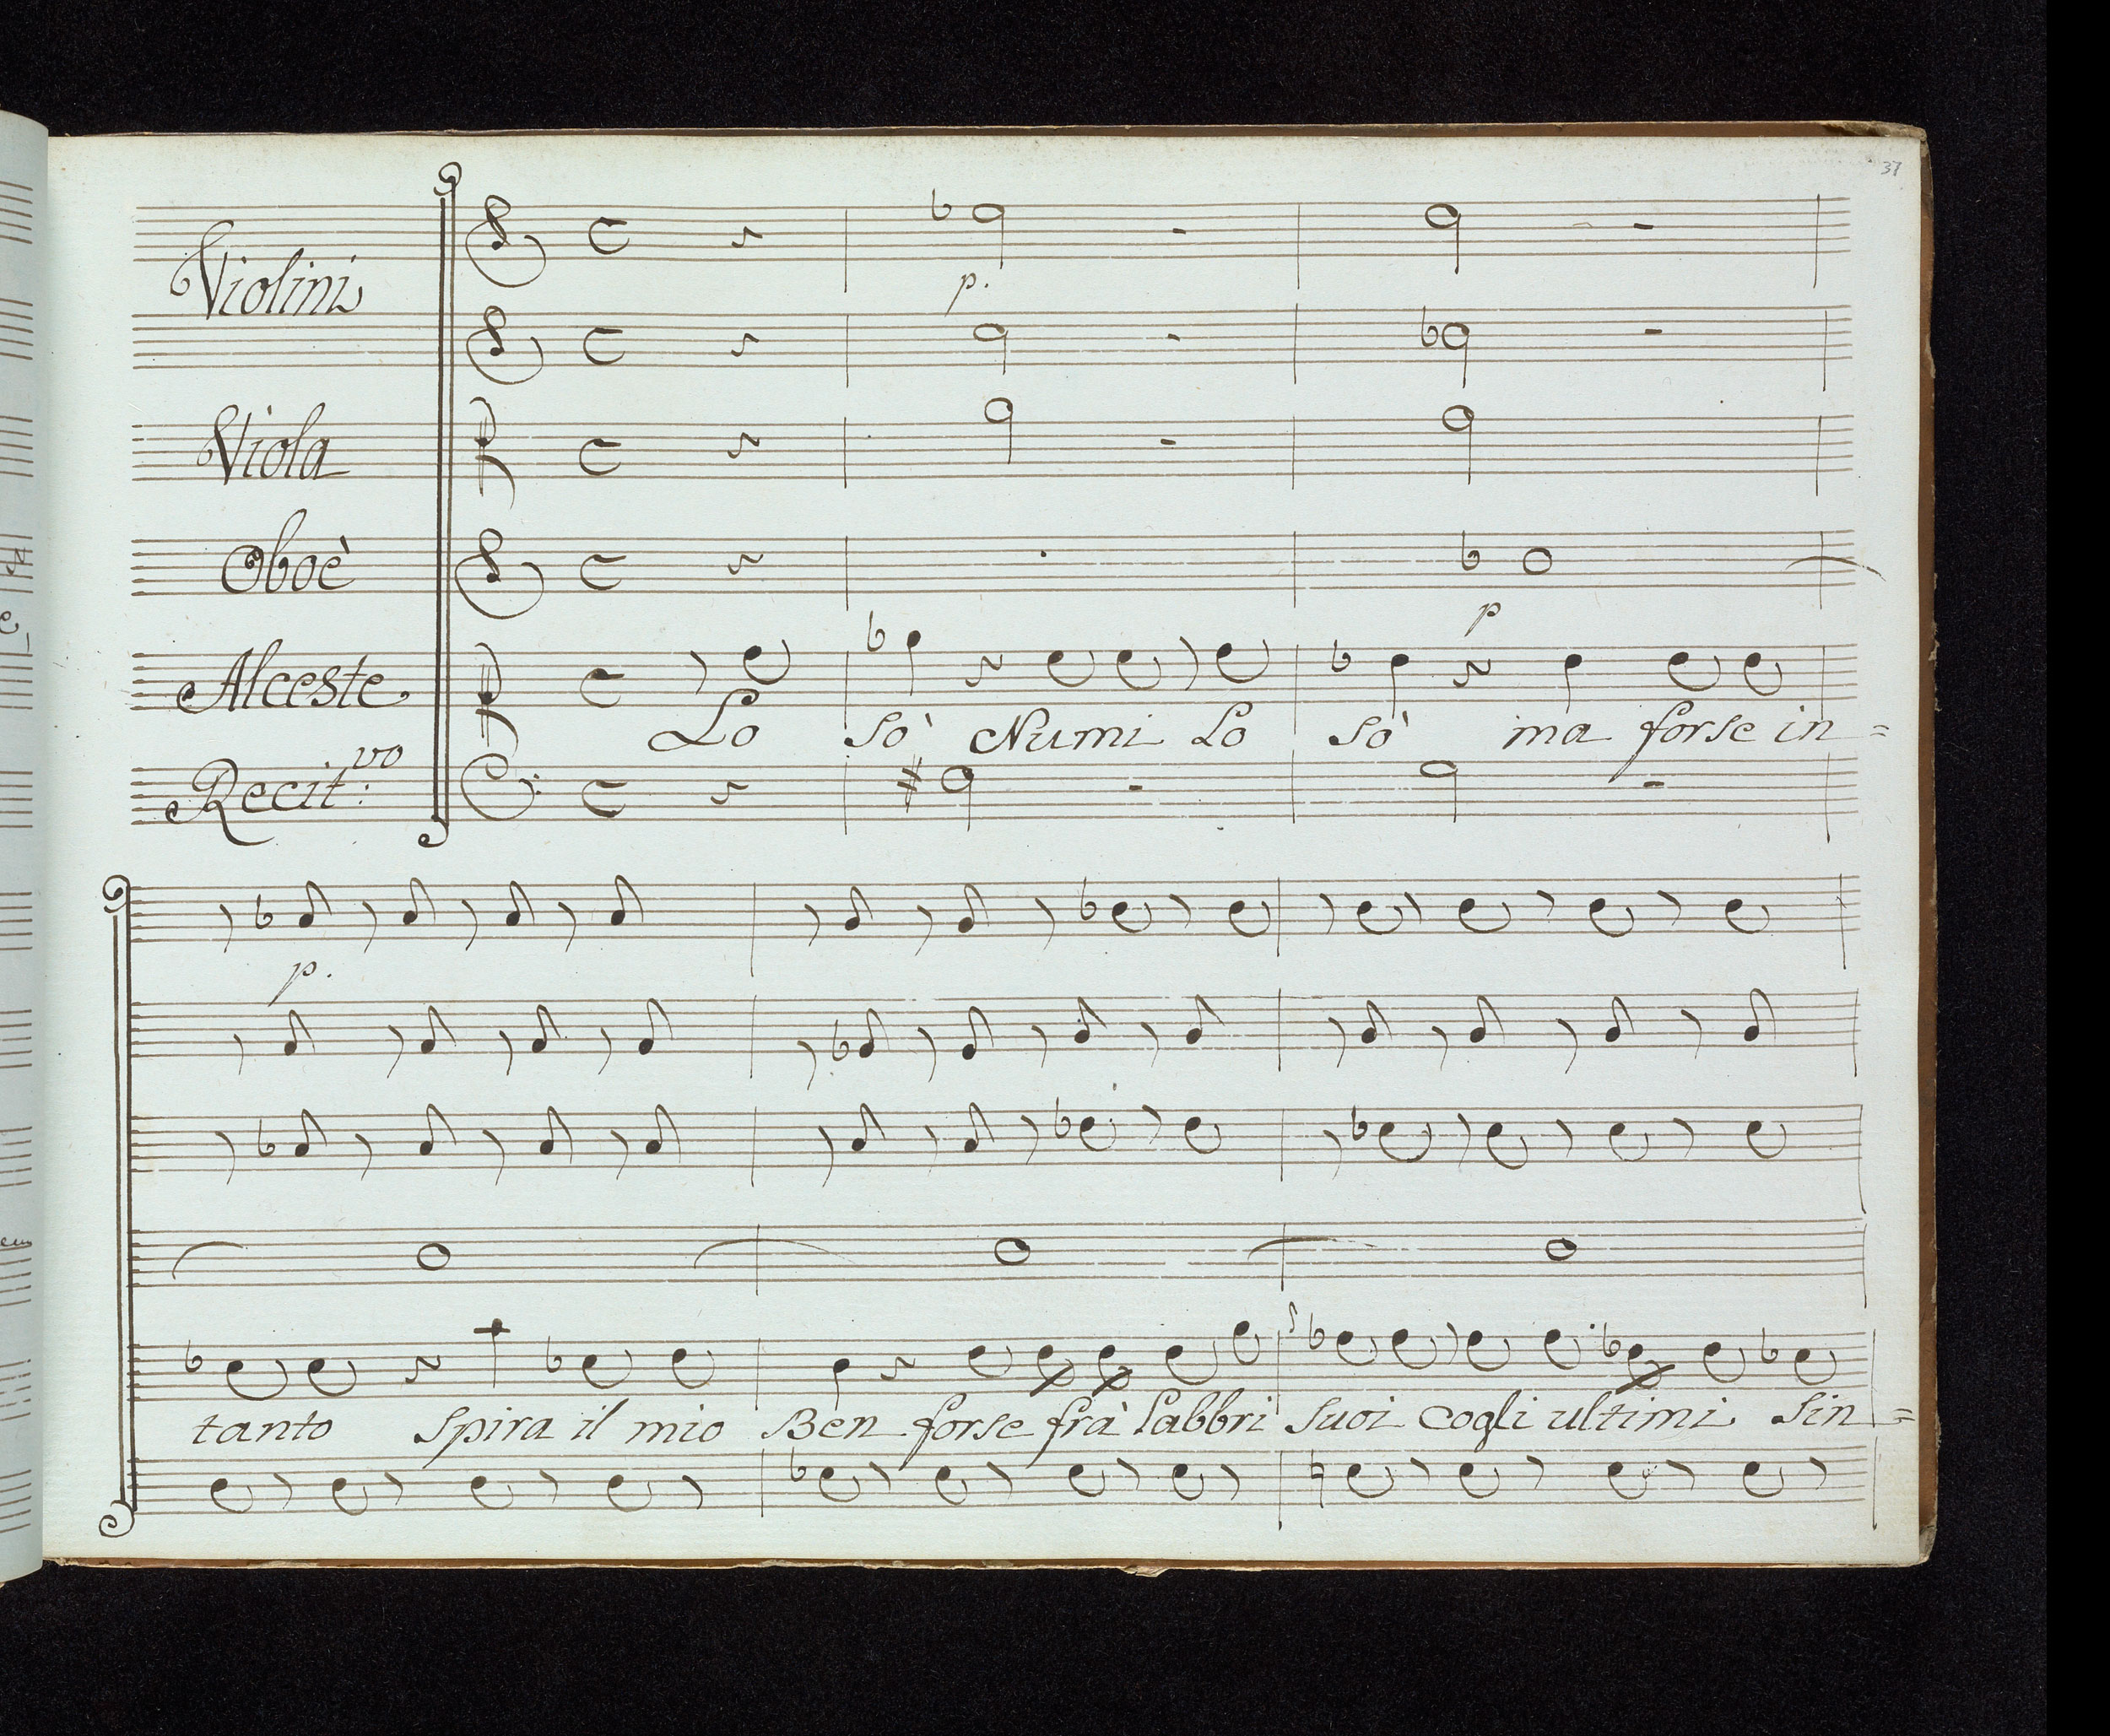 37
Violini
p.
Viola
Oboè
p
Alceste
Lo sò Numi Lo sò ma forse in=
Recit:vo
p.
tanto spira il mio Ben forse frà labbri suoi cogli ultimi sin=